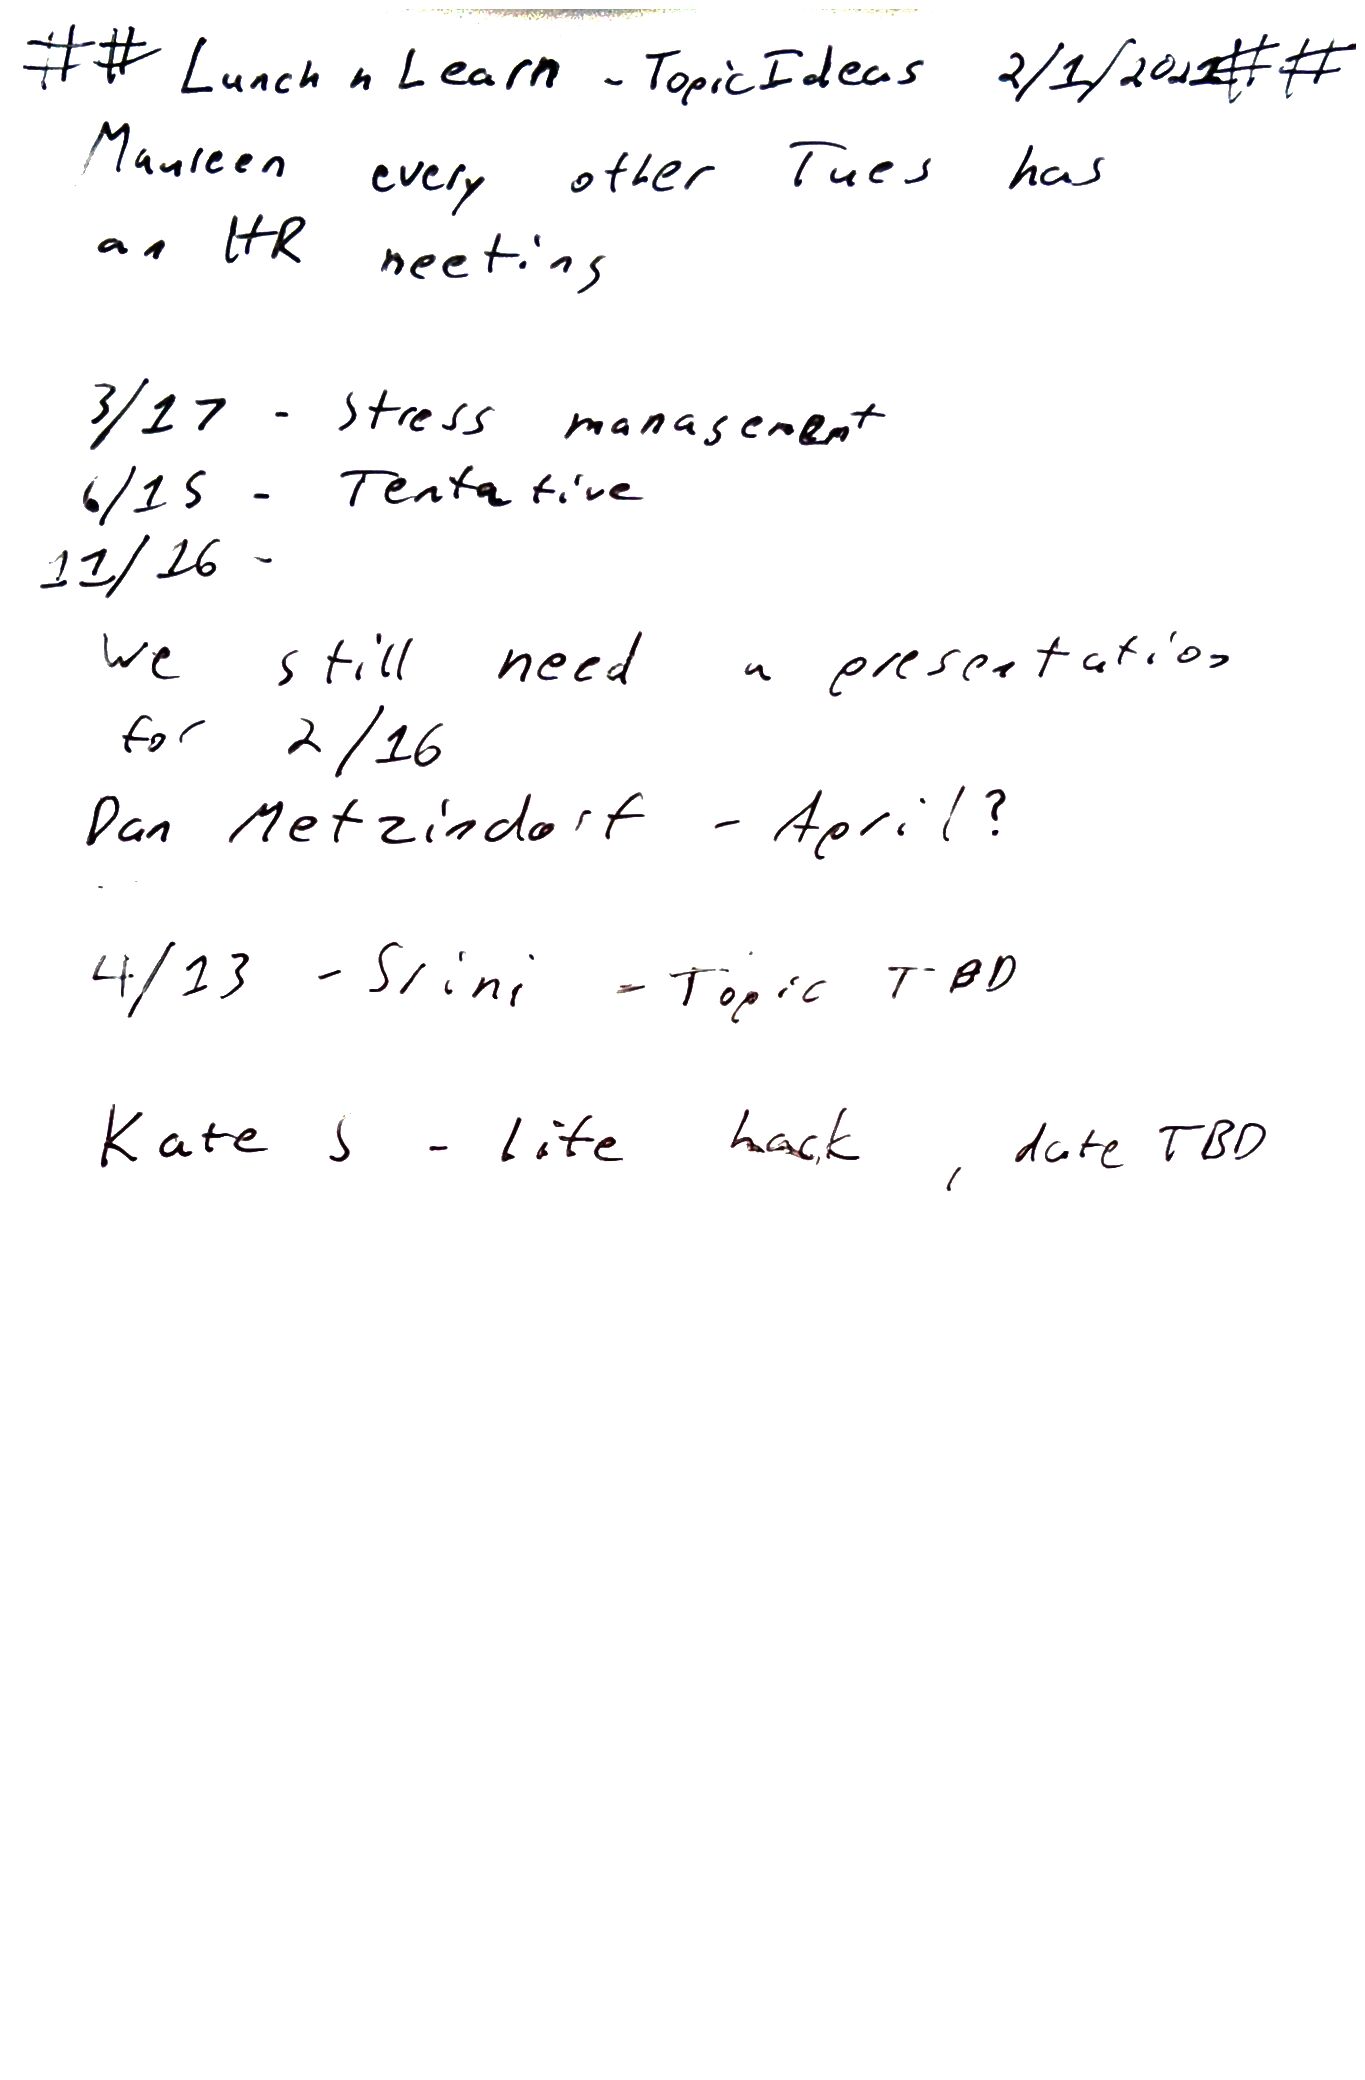 ## Lunch n Learn - Topic Ideas 2/1/2021 ##
Maureen every other Tues has
an HR meeting
3/17 - Stress management
6/15 - Tentative
11/16 -
We still need a presentation
for 2/16
Dan Metzindorf - April?
4/13 - Srini - Topic TBD
Kate S - life hack, date TBD